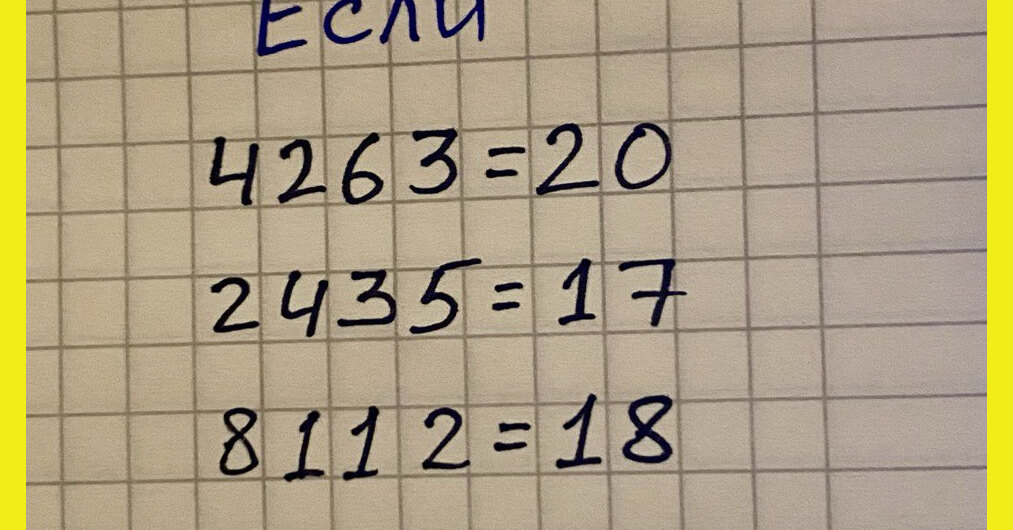 Если
4263=20
2435=17
8112=18